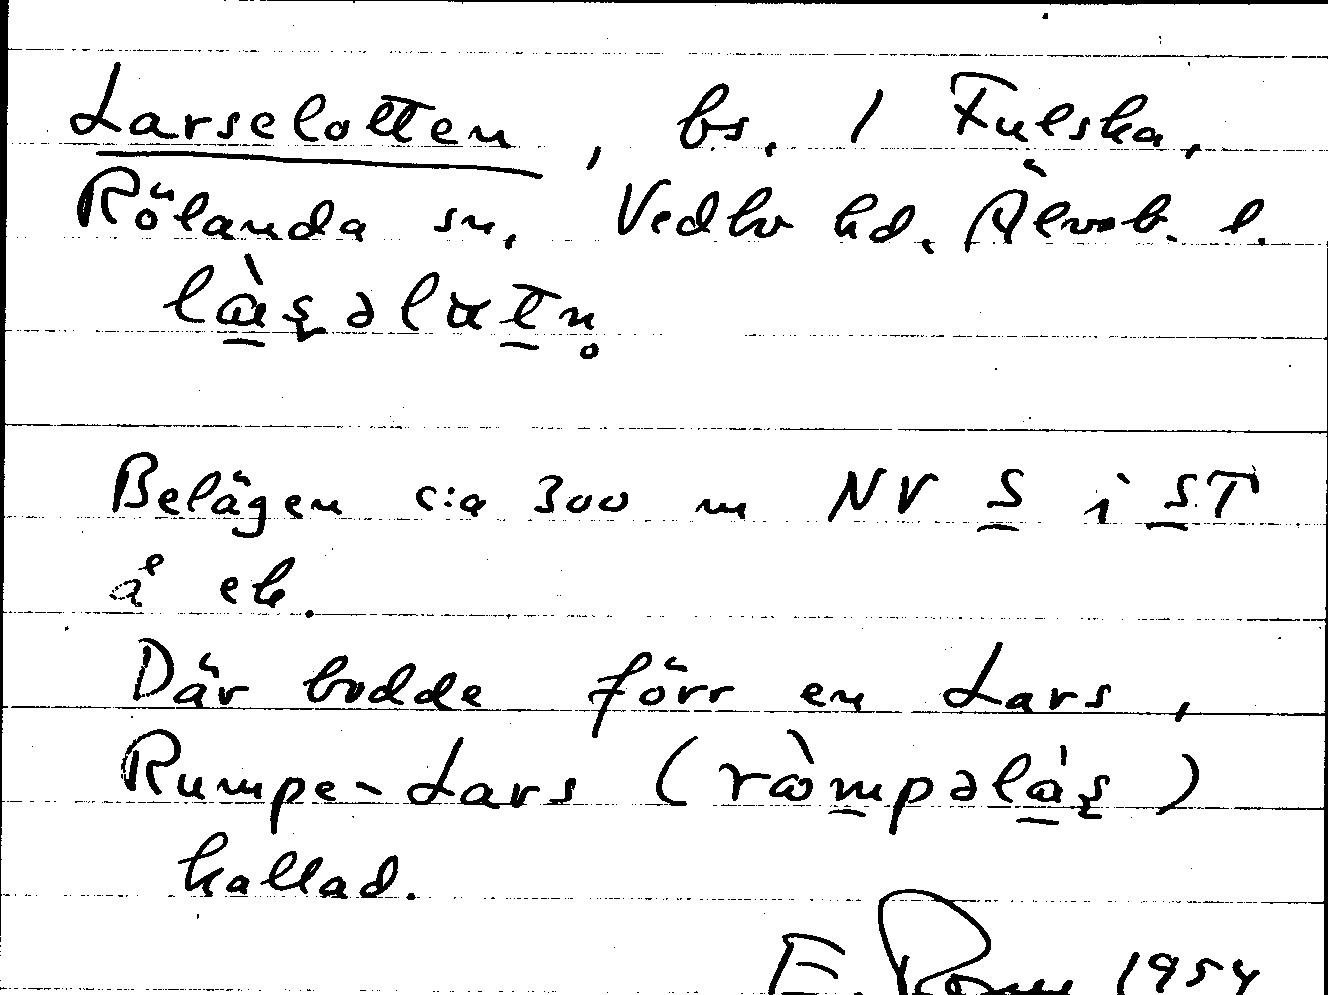 Larselotten, bs. / Fulska,
Rölanda sn, Vedbo hd. Älvsb. l.
là̱ʂəlαṯn̥
Belägen c:a 300 m NV S̱ i S̱T
å ek.
Där bodde förr en Lars,
Rumpe-Lars (ròm̱pəlá̱ʂ)
kallad.
E. 1954